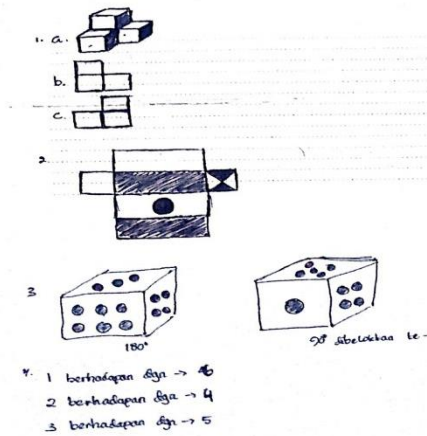 1. a.
b.
c.
2.
3
180°
90° dibelokkan ke -
4. 1 berhadapan dgn → 6
2 berhadapan dgn → 4
3 berhadapan dgn → 5